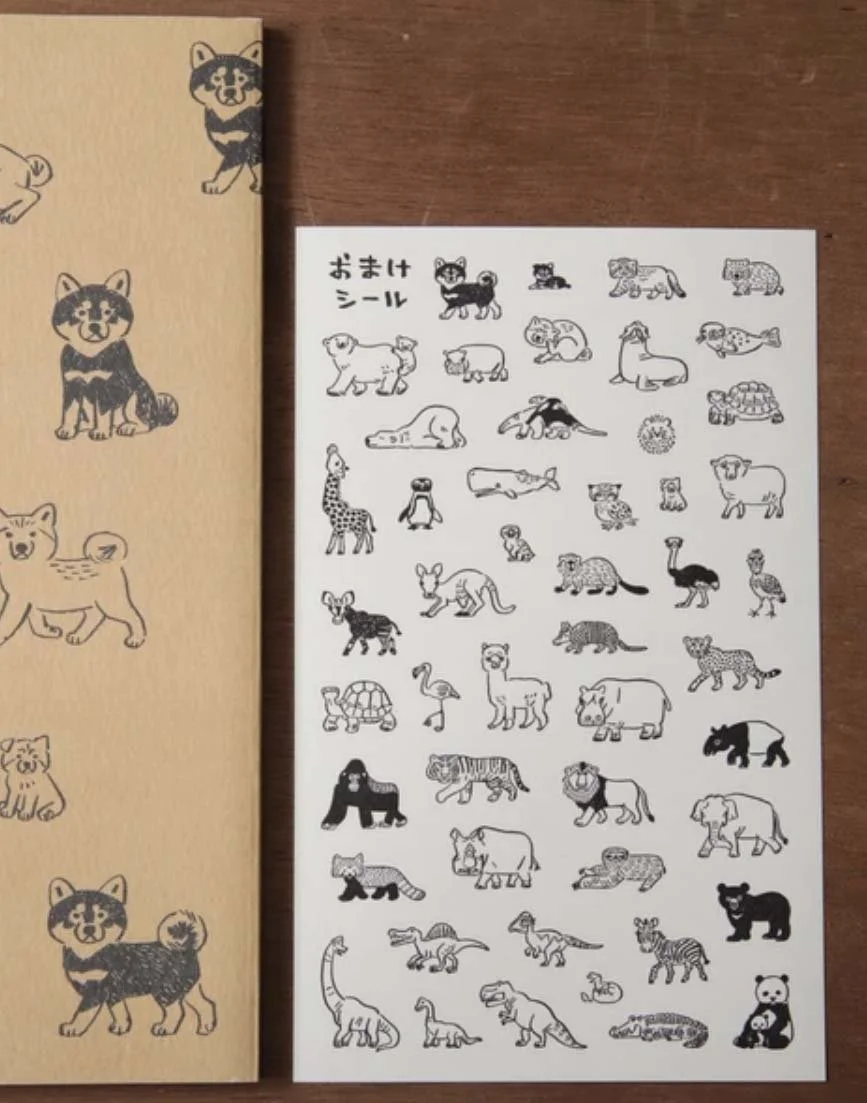 おまけ
シール